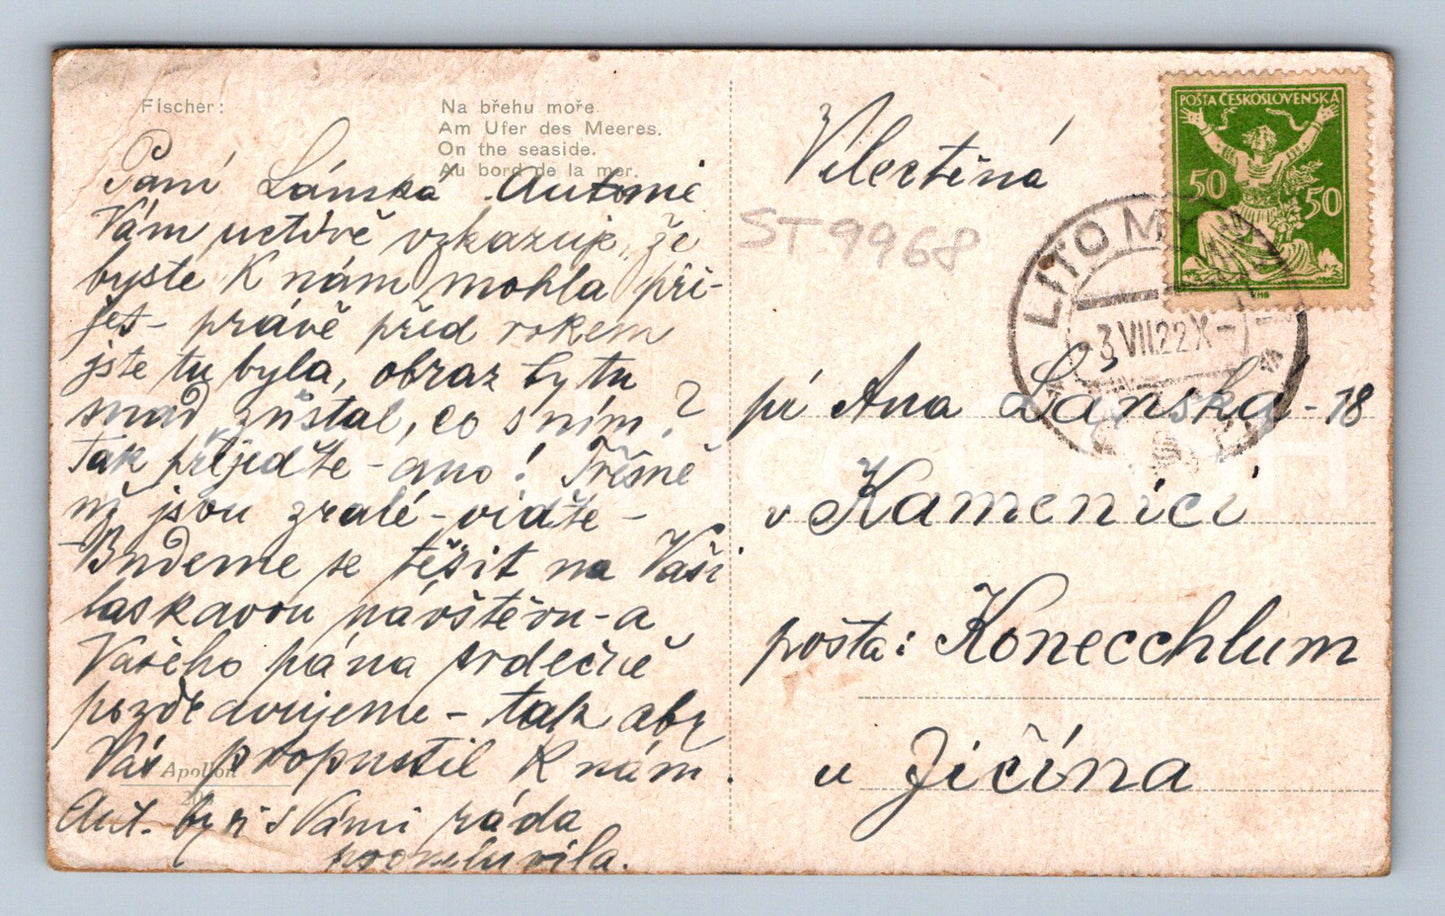 Fischer:
Na břehu moře.
Am Ufer des Meeres.
On the seaside.
Au bord de la mer.
Paní Lánská Antonie
Vám uctivě vzkazuje, že
byste k nám mohla při-
jet - právě před rokem
jste tu byla, obraz by tu
snad zůstal, co s ním?
Tak přijeďte - ano! Třešně
už jsou zralé - viďte -
Budeme se těšit na Vaši
laskavou návštěvu - a
Vašeho pána srdečně
pozdravujeme - tak aby
Vás propustil k nám.
Apollon
Ant. by si s Vámi ráda
pomluvila.
Velectěná
ST 9968
POŠTA ČESKOSLOVENSKÁ
50 50
LITOM
3 VII.22X-
pí Ana Lánská - 18
v Kamenici
pošta: Konecchlum
u Jičína